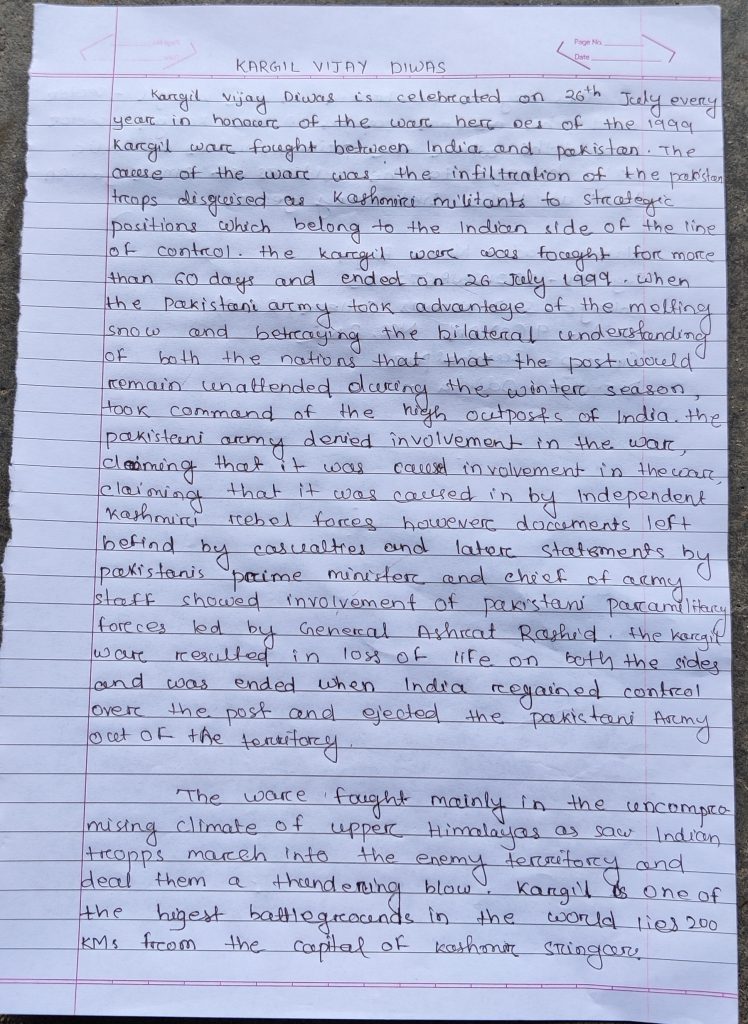 Page No.
Date
KARGIL VIJAY DIWAS
Kargil vijay Diwas is celebrated on 26th July every
year in honour of the war her oes of the 1999
Kargil war fought between India and pakistan. The
cause of the war was the infiltration of the pakistan
trops disguised as Kashmiri militants to strategic
positions which belong to the Indian side of the line
of control. the kargil war was fought for more
than 60 days and ended on 26 July 1999. when
the pakistani army took advantage of the melting
snow and betraying the bilateral understanding
of both the nations that that the post would
remain unattended during the winter season,
took command of the high outposts of India. the
pakistani army denied involvement in the war,
claiming that it was caused involvement in the war,
claiming that it was caused in by Independent
Kashmiri rebel forces however documents left
behind by casualties and later statements by
pakistanis prime minister and chief of army
staff showed involvement of pakistani paramilitary
forces led by General Ashrat Rashid. the kargil
war resulted in loss of life on both the sides
and was ended when India regained control
over the post and ejected the pakistani Army
out of the territory.
The ware fought mainly in the uncompro
mising climate of upper Himalayas as saw Indian
tropps march into the enemy territory and
deal them a thundering blow. Kargil is one of
the higest battlegrounds in the world lies 200
KMs from the capital of kashmir sringar.